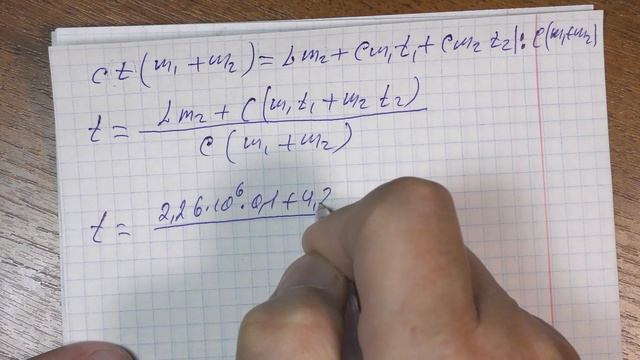 c t (m₁ + m₂) = L m₂ + c m₁ t₁ + c m₂ t₂ | : c (m₁ + m₂)
t = (L m₂ + c (m₁ t₁ + m₂ t₂)) / (c (m₁ + m₂))
t = 2,26 · 10⁶ · 0,1 + 4,2